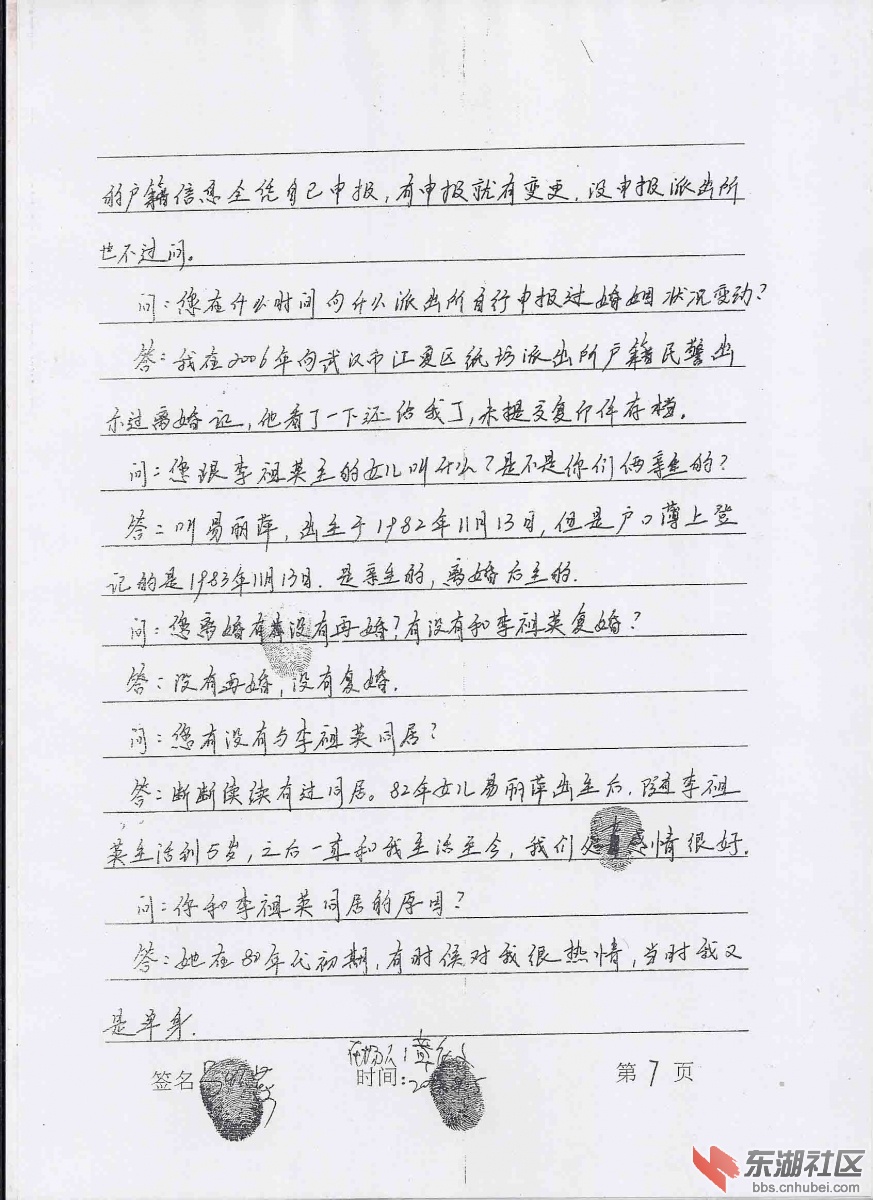 的户籍信息全凭自己申报，有申报就有变更，没申报派出所
也不过问。
问：您在什么时间向什么派出所自行申报过婚姻状况变动？
答：我在2006年向武汉市江夏区纸坊派出所户籍民警出
示过离婚记，他看了一下还给我了，未提交复印件存档。
问：您跟李祖英生的女儿叫什么？是不是你们俩亲生的？
答：叫易丽萍，出生于1982年11月13日，但是户口薄上登
记的是1983年11月13日．是亲生的，离婚后生的．
问：您离婚有没有再婚？有没有和李祖英复婚？
答：没有再婚，没有复婚．
问：您有没有与李祖英同居？
答：断断续续有过同居。82年女儿易丽萍出生后，随李祖
英生活到5岁，之后一直和我生活至今，我们感情很好．
问：你和李祖英同居的原因？
答：她在80年代初期，有时候对我很热情，当时我又
是单身．
签名
时间：
第7页
东湖社区
bbs.cnhubei.com